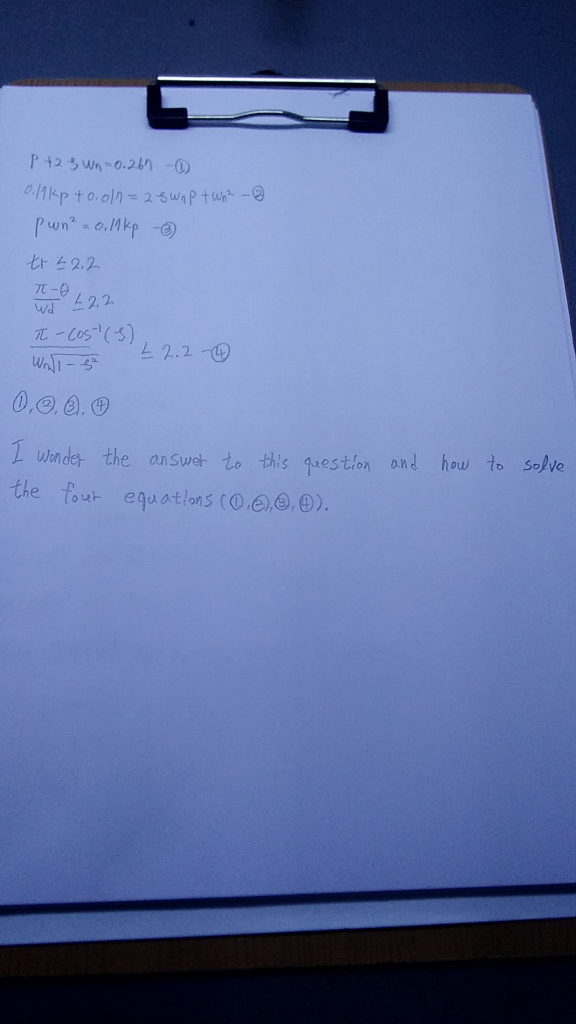 P + 2ζWn = 0.267 -①
0.17Kp + 0.017 = 2ζWnP + Wn² -②
Pwn² = 0.17Kp -③
tr ≤ 2.2
(π-θ)/Wd ≤ 2.2
(π - Cos⁻¹(ζ))/(Wn√(1-ζ²)) ≤ 2.2 -④
①, ②, ③, ④
I wonder the answer to this question and how to solve
the four equations (①,②,③,④).